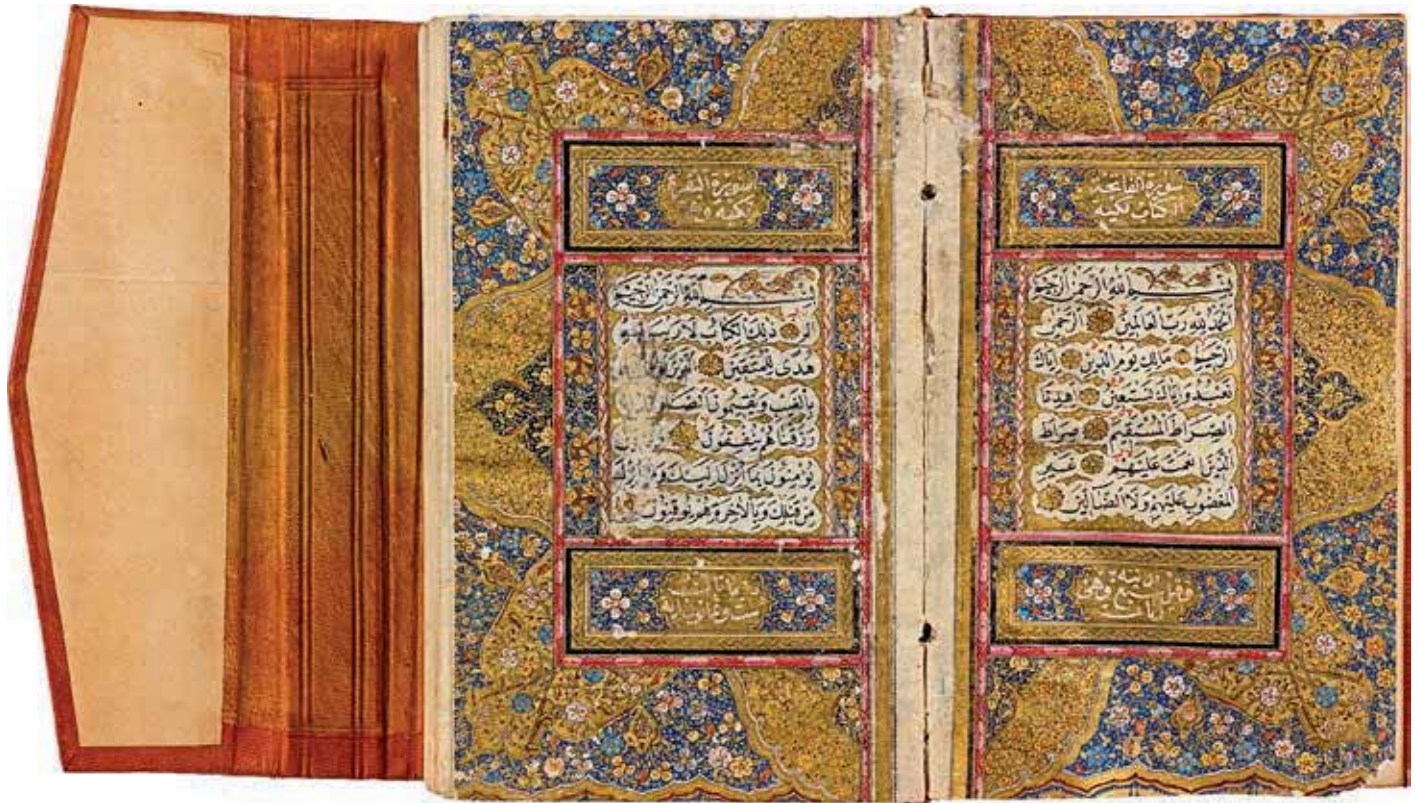 سورة الفاتحة
الكتاب مكية
بسم الله الرحمن الرحيم
الحمد لله رب العالمين الرحمن
الرحيم مالك يوم الدين اياك
نعبد واياك نستعين اهدنا
الصراط المستقيم صراط
الذين انعمت عليهم غير
المغضوب عليهم ولا الضالين
وقيل سبع وهي
ايات
سورة البقرة
بسم الله الرحمن الرحيم
الم ذلك الكتاب لا ريب فيه
هدى للمتقين الذين
بالغيب ويقيمون الصلوة
رزقناهم ينفقون والذين
يؤمنون بما انزل اليك وما انزل
من قبلك وبالاخرة هم يوقنون